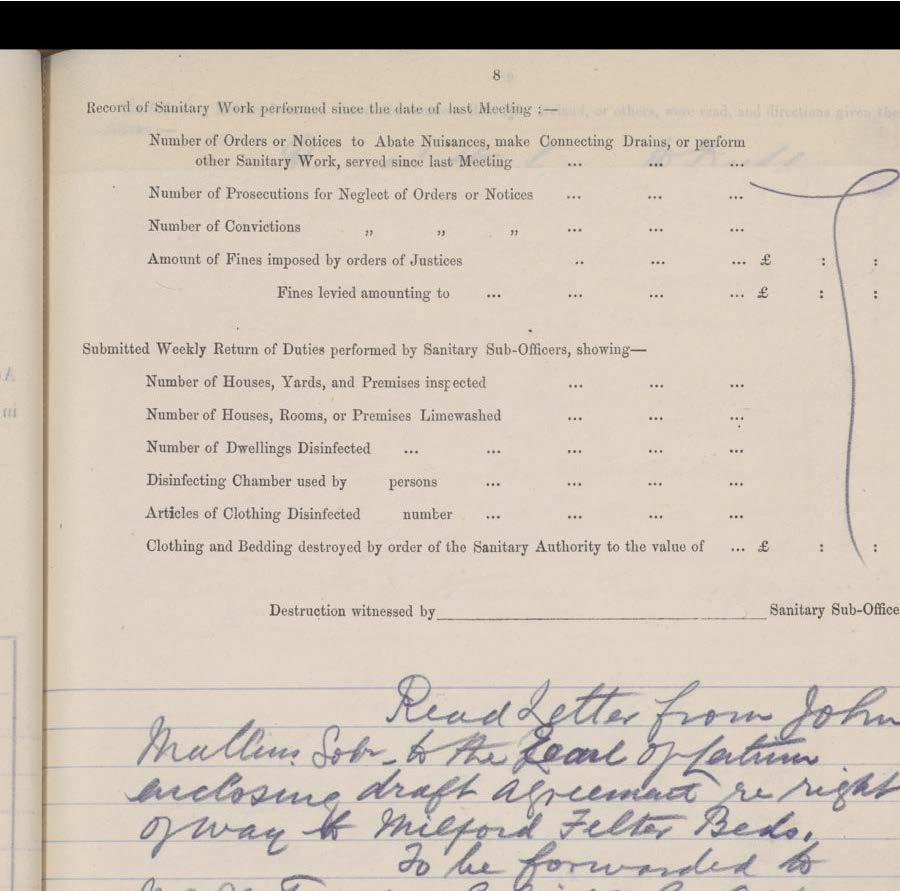 8
Record of Sanitary Work performed since the date of last Meeting :—
Number of Orders or Notices to Abate Nuisances, make Connecting Drains, or perform
other Sanitary Work, served since last Meeting ... ... ...
Number of Prosecutions for Neglect of Orders or Notices ... ... ...
Number of Convictions „ „ „ ... ... ...
Amount of Fines imposed by orders of Justices .. ... ... £ : :
Fines levied amounting to ... ... ... ... £ : :
Submitted Weekly Return of Duties performed by Sanitary Sub-Officers, showing—
Number of Houses, Yards, and Premises inspected ... ... ...
Number of Houses, Rooms, or Premises Limewashed ... ... ...
Number of Dwellings Disinfected ... ... ... ... ...
Disinfecting Chamber used by persons ... ... ... ...
Articles of Clothing Disinfected number ... ... ... ...
Clothing and Bedding destroyed by order of the Sanitary Authority to the value of ... £ : :
Destruction witnessed by Sanitary Sub-Office
Read Letter from John
Mullins Solr. to the Earl of
enclosing draft agreement re right
of way to Milford Felter Beds.
To be forwarded to